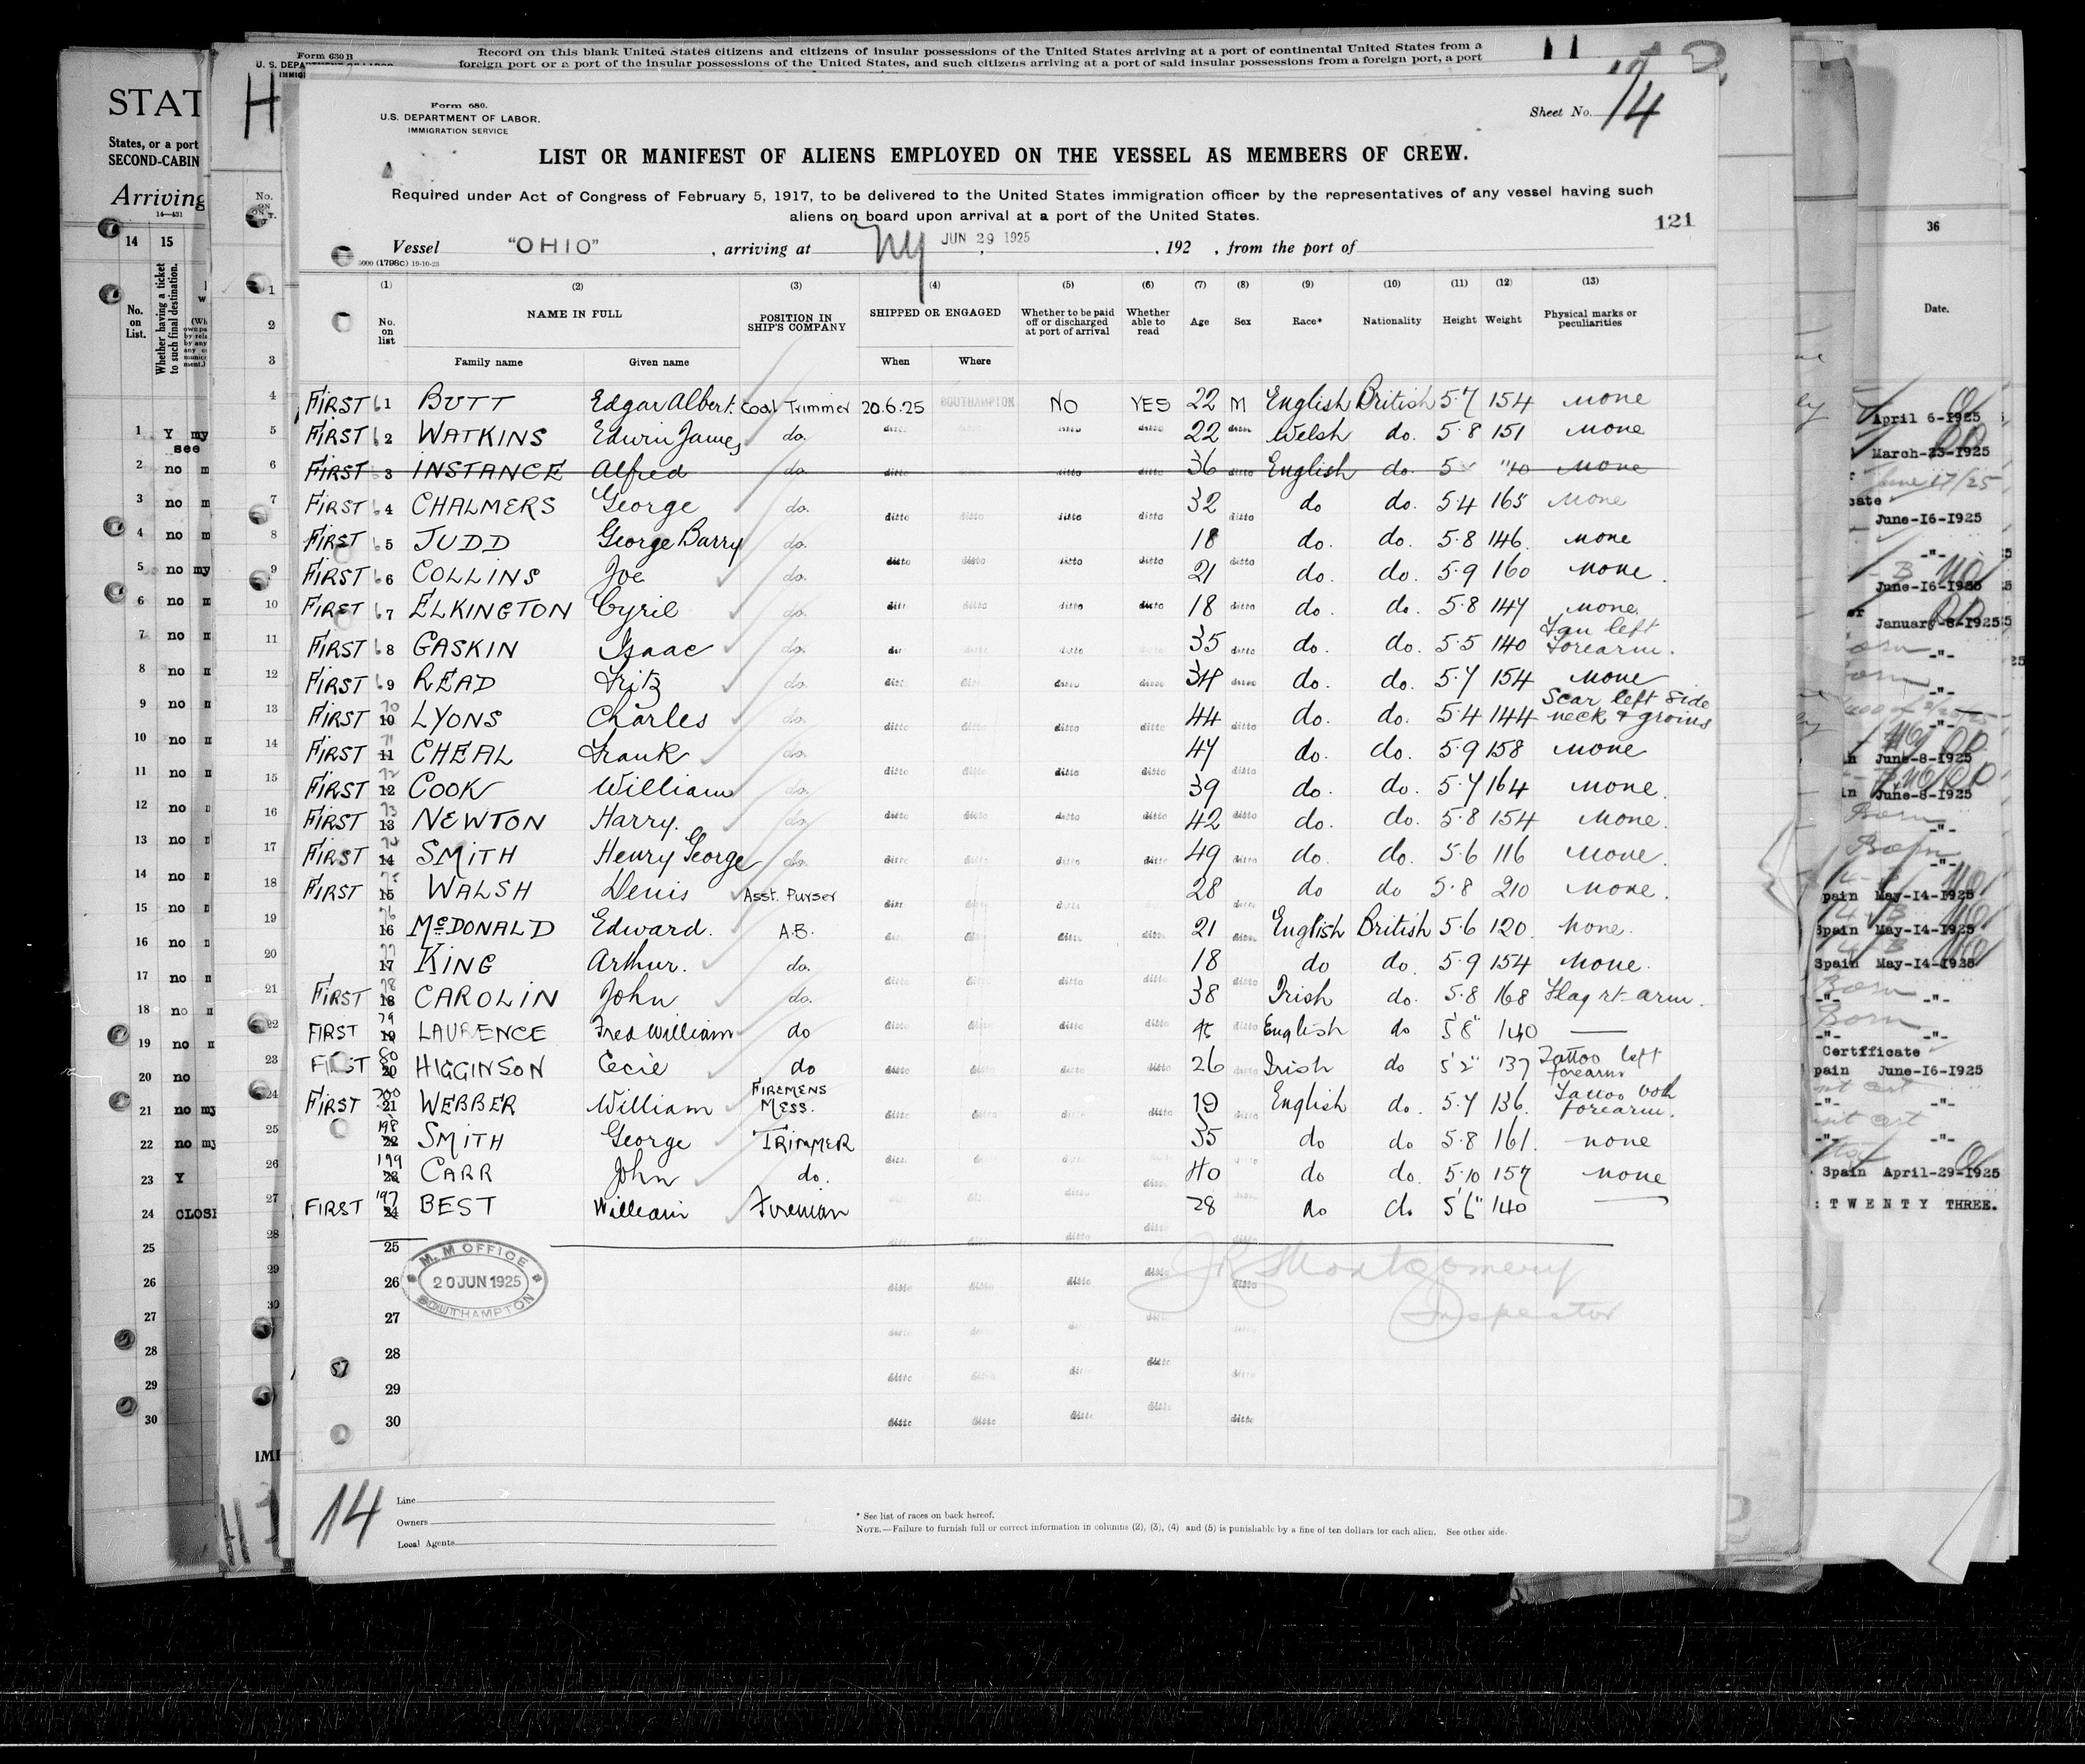 Form 630 B
Record on this blank United States citizens and citizens of insular possessions of the United States arriving at a port of continental United States from a
foreign port or a port of the insular possessions of the United States, and such citizens arriving at a port of said insular possessions from a foreign port, a port
Form 680.
U.S. DEPARTMENT OF LABOR.
IMMIGRATION SERVICE
Sheet No. 14
LIST OR MANIFEST OF ALIENS EMPLOYED ON THE VESSEL AS MEMBERS OF CREW.
Required under Act of Congress of February 5, 1917, to be delivered to the United States immigration officer by the representatives of any vessel having such
aliens on board upon arrival at a port of the United States.
121
Vessel "OHIO", arriving at NY JUN 29 1925, 192 , from the port of
5000 (1798C) 19-10-23
(1) (2) (3) (4) (5) (6) (7) (8) (9) (10) (11) (12) (13)
No. on list NAME IN FULL POSITION IN SHIP'S COMPANY SHIPPED OR ENGAGED Whether to be paid off or discharged at port of arrival Whether able to read Age Sex Race* Nationality Height Weight Physical marks or peculiarities
Family name Given name When Where
FIRST 61 BUTT Edgar Albert. Coal Trimmer 20.6.25 SOUTHAMPTON NO YES 22 M English British 5·7 154 none
FIRST 62 WATKINS Edwin James do. ditto ditto ditto 22 ditto Welsh do. 5·8 151 none
FIRST 63 INSTANCE Alfred do. ditto ditto ditto 36 ditto English do. 5 none
FIRST 64 CHALMERS George do. ditto ditto ditto ditto 32 ditto do do. 5·4 165 none
FIRST 65 JUDD George Barry do. 18 do. do. 5·8 146. none
FIRST 66 COLLINS Joe do. ditto ditto ditto ditto 21 ditto do. do. 5·9 160 none.
FIRST 67 ELKINGTON Cyril do. ditto ditto ditto ditto 18 ditto do. do. 5·8 147 none.
FIRST 68 GASKIN Isaac do. ditto ditto ditto ditto 35 ditto do. do. 5·5 140 left Forearm.
FIRST 69 READ Fritz do. ditto ditto ditto ditto 34 ditto do. do. 5·7 154 none
FIRST 70 10 LYONS Charles do. ditto ditto ditto ditto 44 ditto do. do. 5·4 144 Scar left side neck & groins
FIRST 71 11 CHEAL Frank do. 47 do. do. 5·9 158 none
FIRST 72 12 COOK William do. ditto ditto ditto ditto 39 ditto do. do. 5·7 164 none.
FIRST 73 13 NEWTON Harry. do. ditto ditto ditto ditto 42 ditto do. do. 5·8 154 none.
FIRST 74 14 SMITH Henry George do. ditto ditto ditto ditto 49 ditto do. do. 5·6 116 none.
FIRST 75 15 WALSH Denis Asst. Purser ditto ditto ditto 28 ditto do do 5·8 210 none.
76 16 McDONALD Edward. A.B. ditto ditto ditto ditto 21 ditto English British 5·6 120. none.
77 17 KING Arthur. do. 18 do do. 5·9 154 none.
FIRST 78 18 CAROLIN John do. ditto ditto ditto ditto 38 ditto Irish do. 5·8 168 Flag rt arm.
FIRST 79 19 LAURENCE Fred William do ditto ditto ditto ditto ditto English do 5'8" 140 —
FIRST 80 20 HIGGINSON Cecil do ditto ditto ditto ditto 26 ditto Irish do 5'2" 137 Tattoo left forearm
FIRST 200 21 WEBBER William FIREMENS MESS. ditto ditto ditto ditto 19 ditto English do. 5·7 136. Tattoo both forearm.
198 22 SMITH George TRIMMER 35 do do 5·8 161. none
199 23 CARR John do. ditto ditto ditto ditto 40 ditto do do. 5·10 157 none
FIRST 197 24 BEST William Fireman ditto ditto ditto ditto 28 ditto do do 5'6" 140 —
25
M. M OFFICE
26 20 JUN 1925
SOUTHAMPTON
J R Montgomery
Inspector
27
28
29
30
57
14
Line
Owners
Local Agents
* See list of races on back hereof.
NOTE.—Failure to furnish full or correct information in columns (2), (3), (4) and (5) is punishable by a fine of ten dollars for each alien. See other side.
STAT
States, or a port
SECOND-CABIN
Arriving
14 15
No. on List.
Whether having a ticket to such final destination.
1 Y my
see
2 no m
3 no m
4 no m
5 no my
6 no
7 no
8 no
9 no
10 no
11 no
12 no
13 no
14 no
15 no
16 no
17 no
18 no
19 no
20 no
21 no my
22 no my
23 Y
24 CLOSE
25
26
27
28
29
30
36
Date.
April 6-1925
March-23-1925
June 17/25
June-16-1925
-"-
June-16-1925
January-8-1925
-"-
-"-
-"-
June-8-1925
June-8-1925
Born -"-
Born -"-
pain May-14-1925
Spain May-14-1925
Spain May-14-1925
Born -"- -"-
Born -"- -"-
Certificate
pain June-16-1925
-"- -"-
-"- -"-
Spain April-29-1925
: TWENTY THREE.